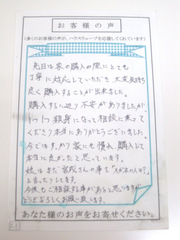 お客様の声
(多くのお客様の声が、ハウスウェーブを応援してくれています)
先日は家の購入の際にとても
丁寧に対応していただき大変気持ち
良く購入することが出来ました。
購入するにあたり不安がありましたが
1つ1つ親身になって相談に乗って
くださり本当にありがとうございました。
今ではすっかり家にも慣れ、購入して
本当に良かったと思っています。
とても
今後もご相談する事があると思いますが
どうぞよろしくお願い致します。
あなた様のお声をお寄せください。